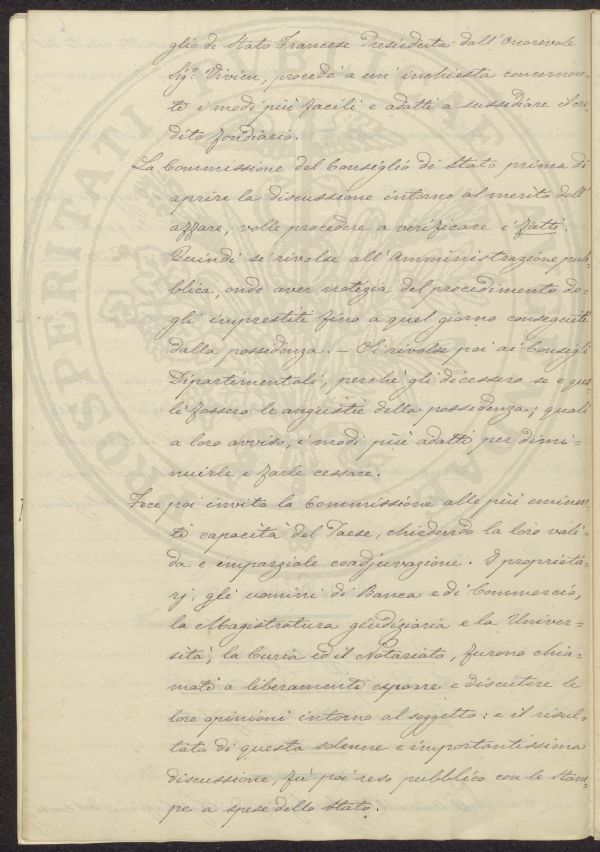 glio di Stato Francese Presieduta dall'Onorevole
Sig.r Vivien, procedé a un'inchiesta concernen-
te i modi più facili e adatti a sussidiare il cre-
dito fondiario.
La Commissione del Consiglio di Stato prima di
aprire la discussione intorno al merito dell'
affare, volle procedere a verificare i fatti.
Quindi si rivolse all'Amministrazione pub-
blica, onde aver notizia del procedimento de-
gli imprestiti fino a quel giorno conseguiti
dalla possidenza. – Si rivolse poi ai Consigli
Dipartimentali, perché gli dicessero se e qua-
li fossero le angustie della possidenza; quali
a loro avviso, i modi più adatti per dimi-
nuirle e farle cessare.
Fece poi invito la Commissione alle più eminen-
ti capacità del Paese, chiedendo la loro vali-
da e imparziale coadjuvazione. I proprietà-
rj, gli uomini di Banca e di Commercio,
la Magistratura giudiziaria e la Univer-
sità, la Curia ed il Notariato, furono chia-
mati a liberamente esporre e discutere le
loro opinioni intorno al soggetto: e il risul-
tato di questa solenne e importantissima
discussione, fù poi reso pubblico con le stam-
pe a spese dello Stato.
PROSPERITATI PUBLICAE